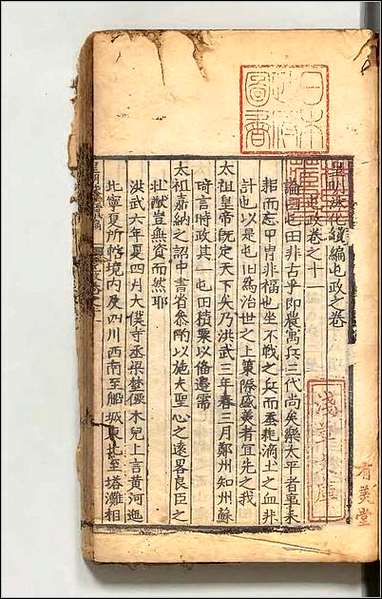 日本政府圖書
皇明泳化續編屯政之卷
屯政卷之十一
論曰屯田非古乎即農寓兵三代尚矣樂太平者事耒
耜而忘甲冑非福也坐不戰之兵而蚕耗滴土之血非
計也以是屯田為治世之上策際盛美者宜先之我
太祖皇帝既定天下矣乃洪武三年春三月鄭州知州蘇
琦言時政其一屯田積粟以俻邊需
太祖嘉納之詔中書省叅酌以施夫聖心之遠畧良臣之
壯猷豈無資而然耶
洪武六年夏四月大僕寺丞梁埜僊木兒上言黃河迤
北寧夏所轄境内及四川西南至船城東北至塔灘相
淺草文庫
有美堂